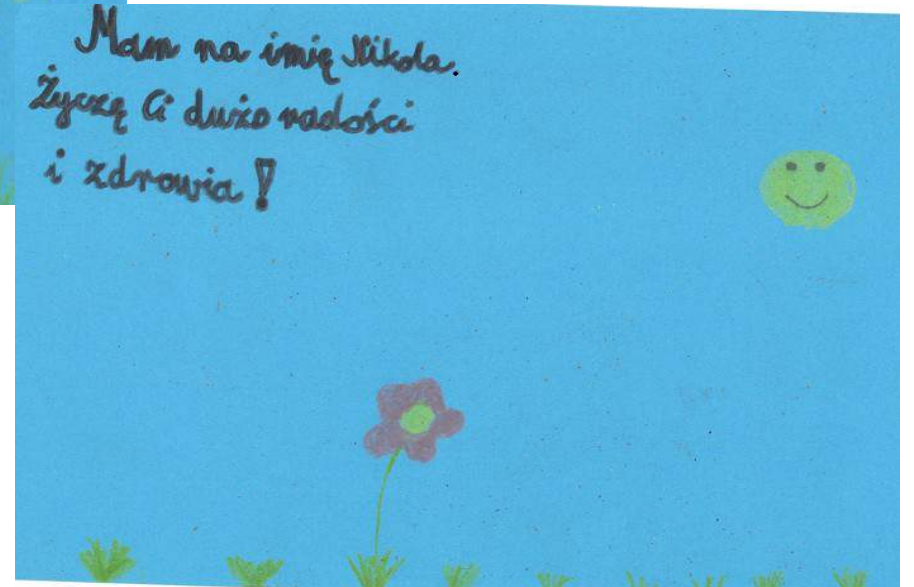 Mam na imię Nikola.
Życzę Ci dużo radości
i zdrowia!